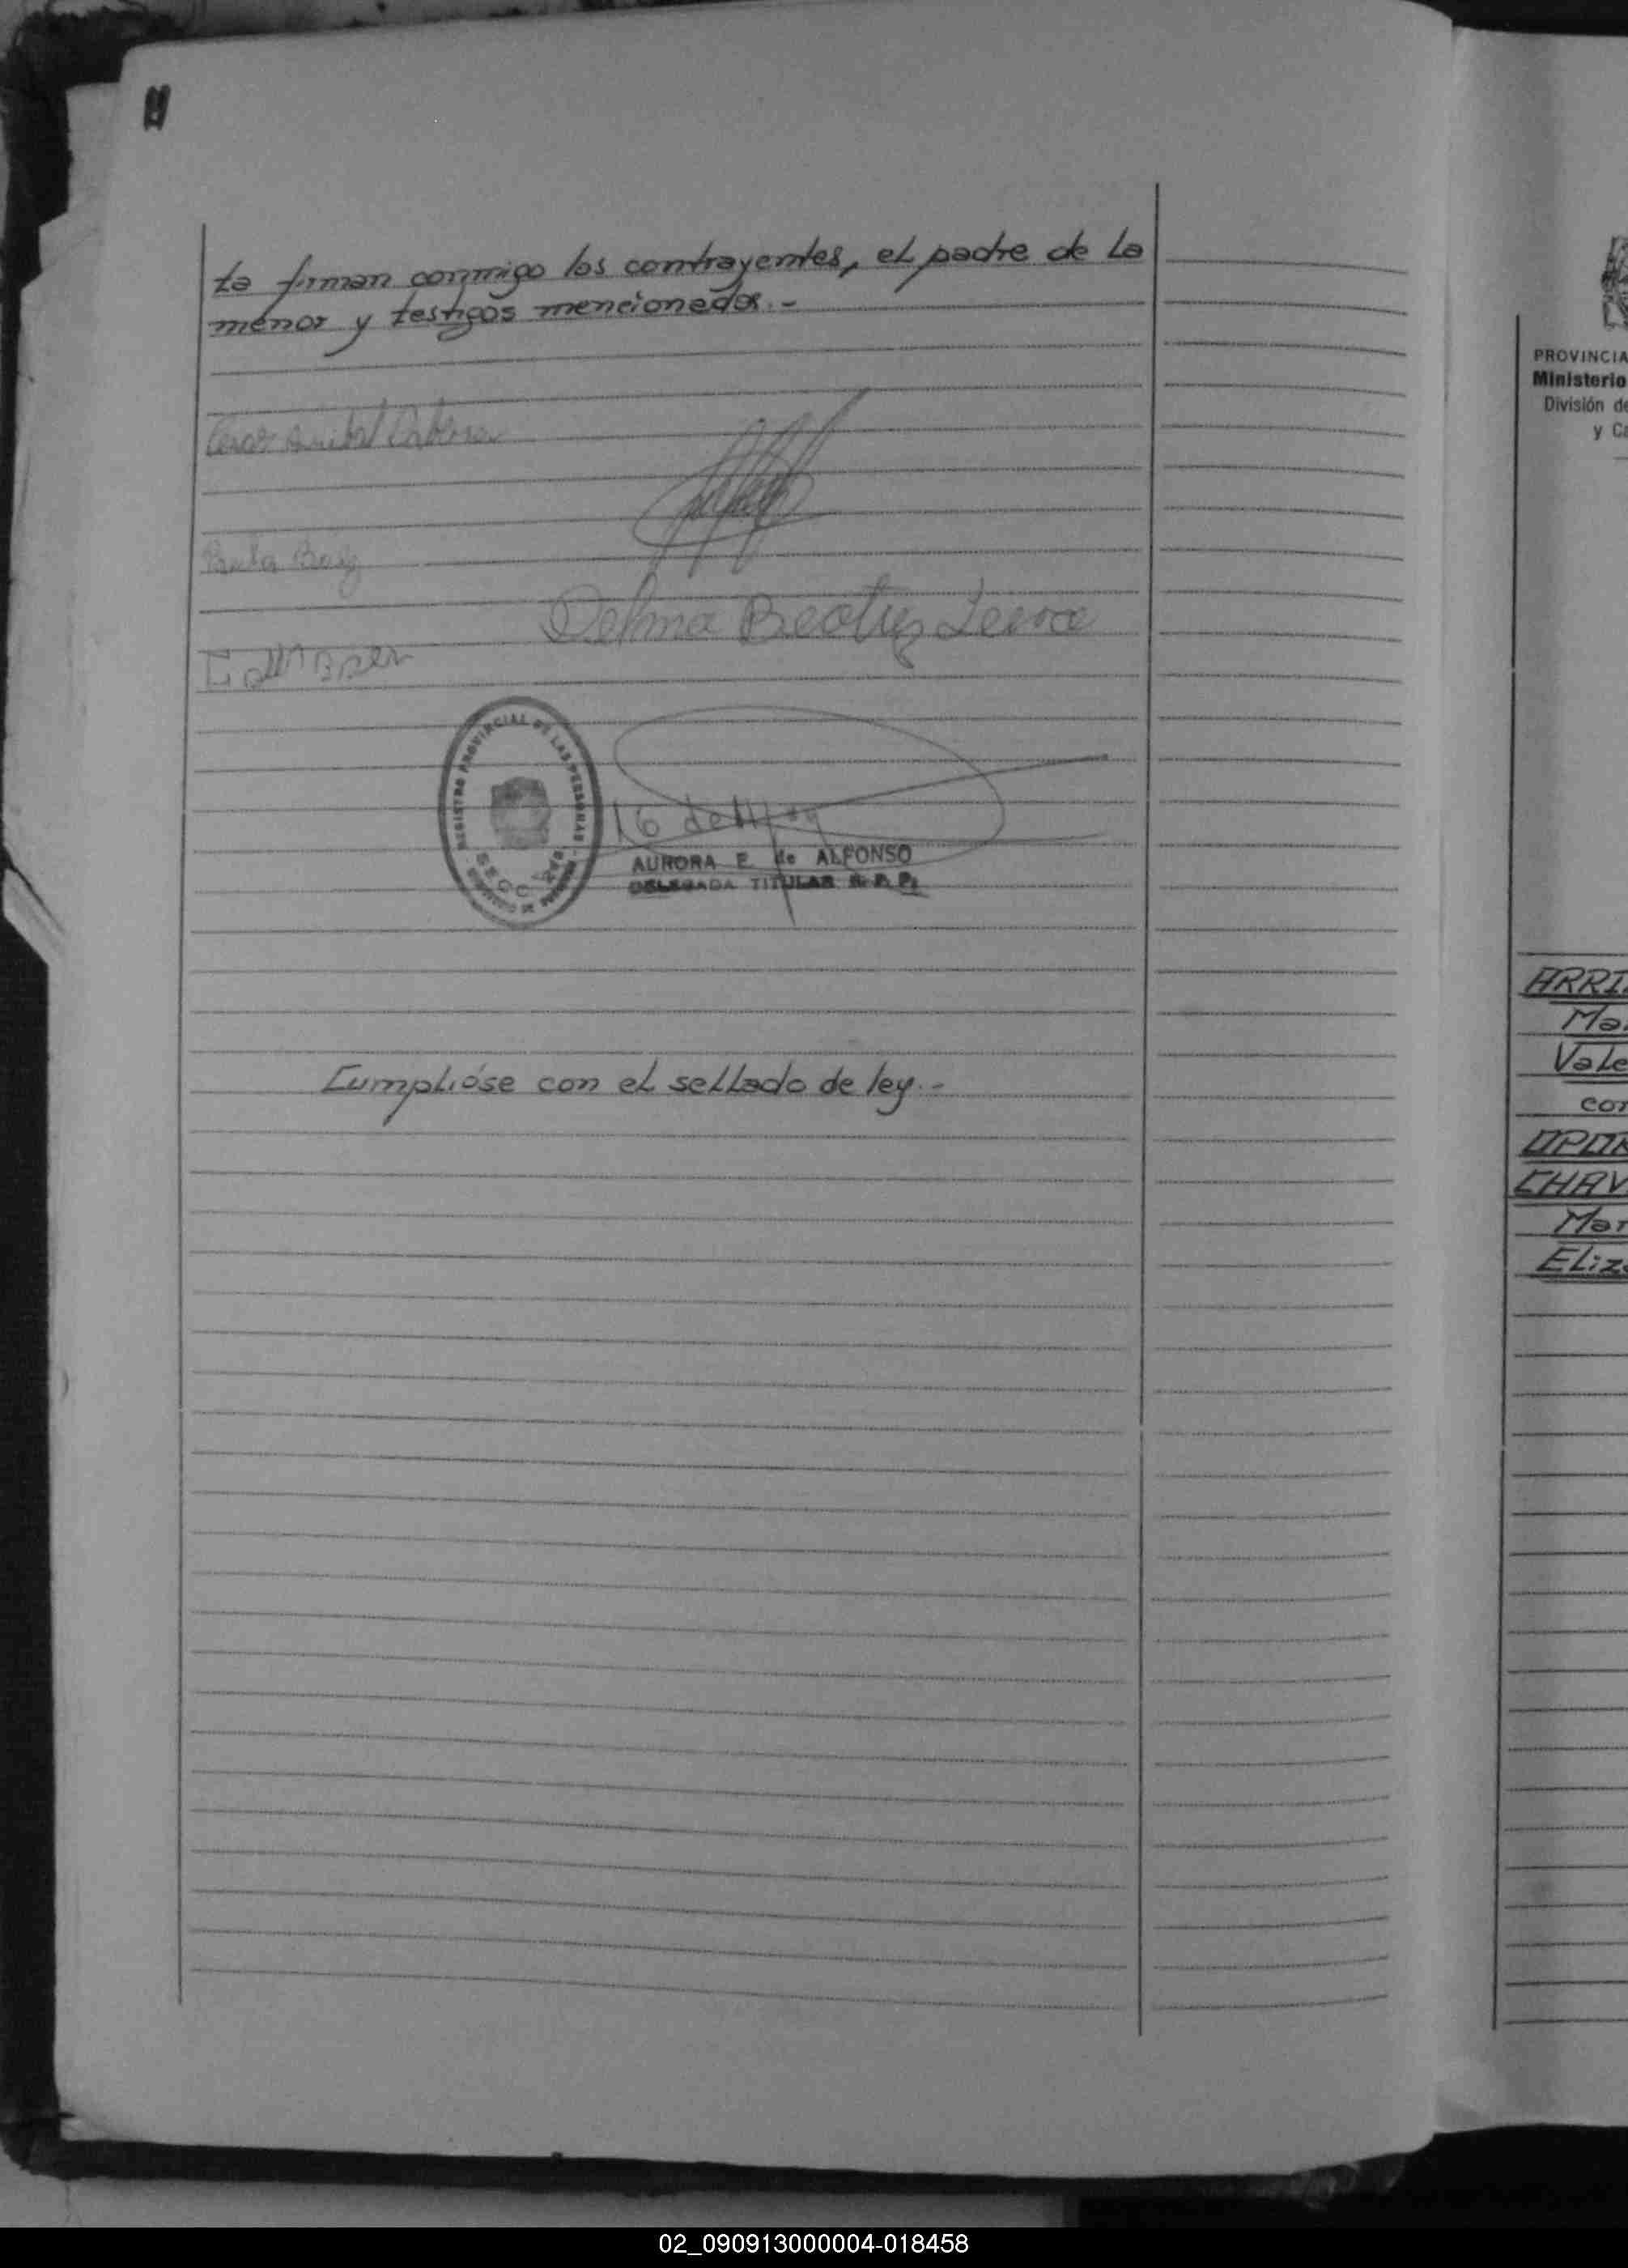 ta firman conmigo los contrayentes, el padre de la
menor y testigos mencionados.-
Cesar Anibal Cabrera
Delma Beatriz
REGISTRO PROVINCIAL DE LAS PERSONAS
SECC.
16 de
AURORA E. de ALFONSO
DELEGADA TITULAR R. P. P.
Cumplióse con el sellado de ley.-
PROVINCIA
Ministerio
División de
y Ca
ARRI
Mar
Vale
con
OPOR
CHAV
Mar
Eliza
02_090913000004-018458